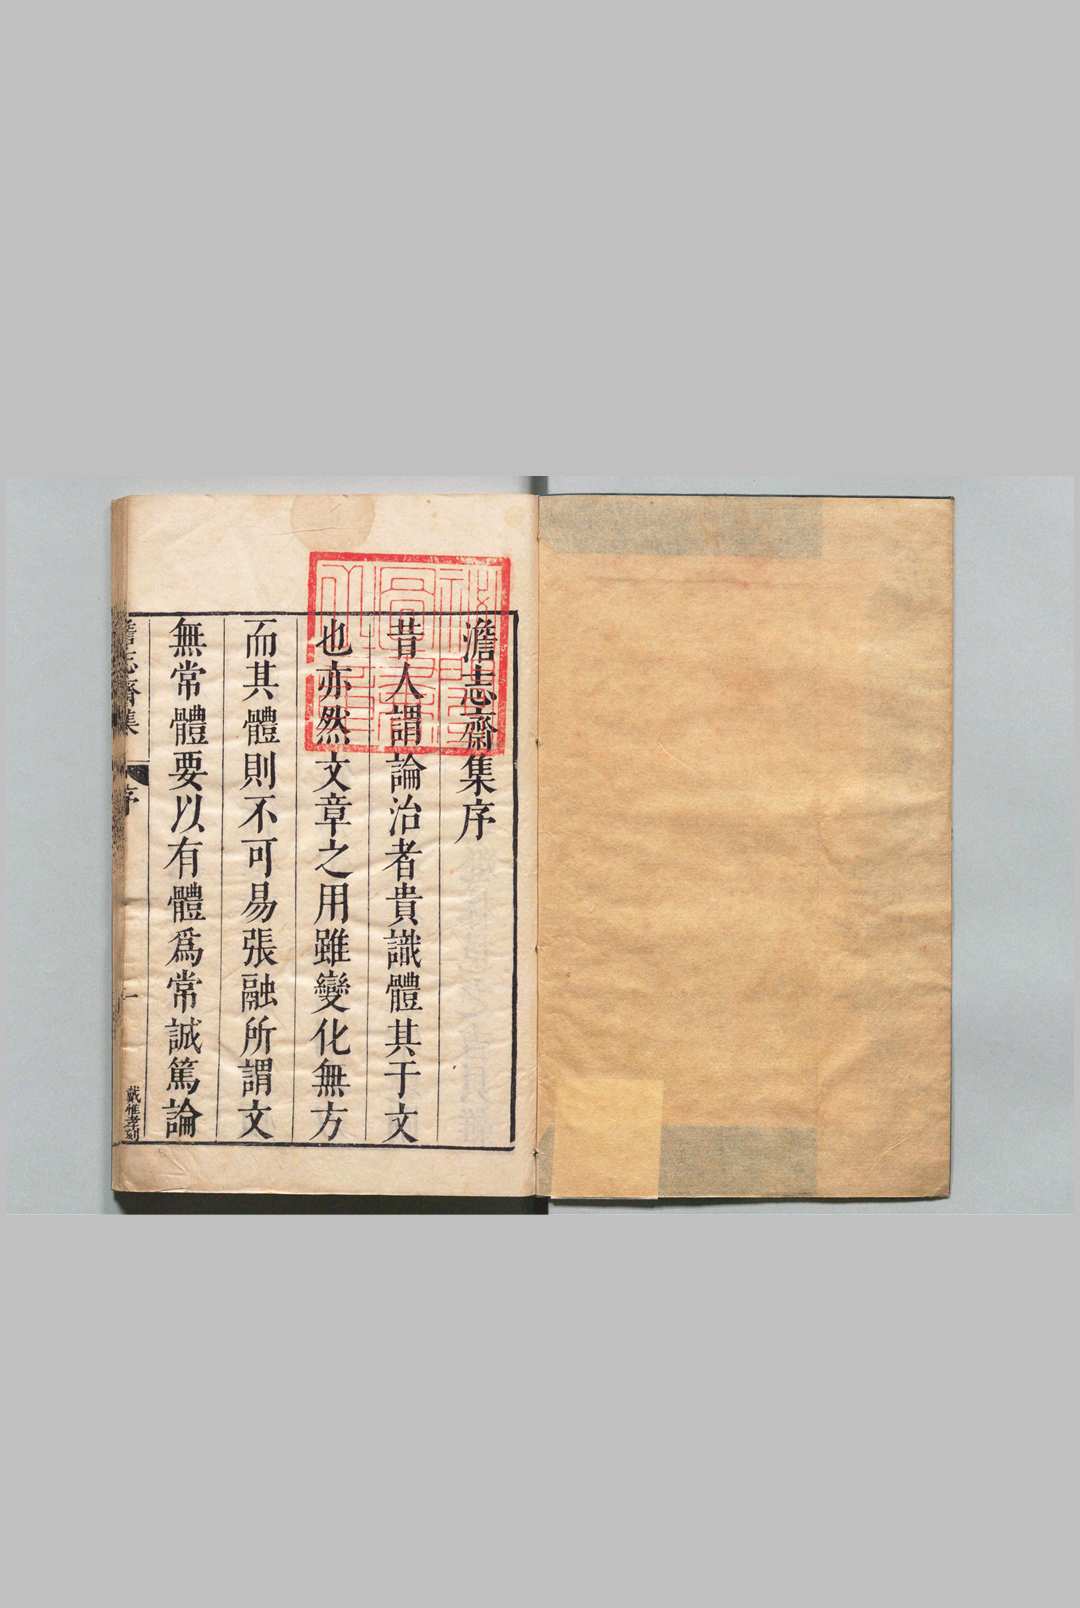 澹志齋集序
昔人謂論治者貴識體其于文
也亦然文章之用雖變化無方
而其體則不可易張融所謂文
無常體要以有體爲常誠篤論
澹志齋集
序
一
戴惟孝刻